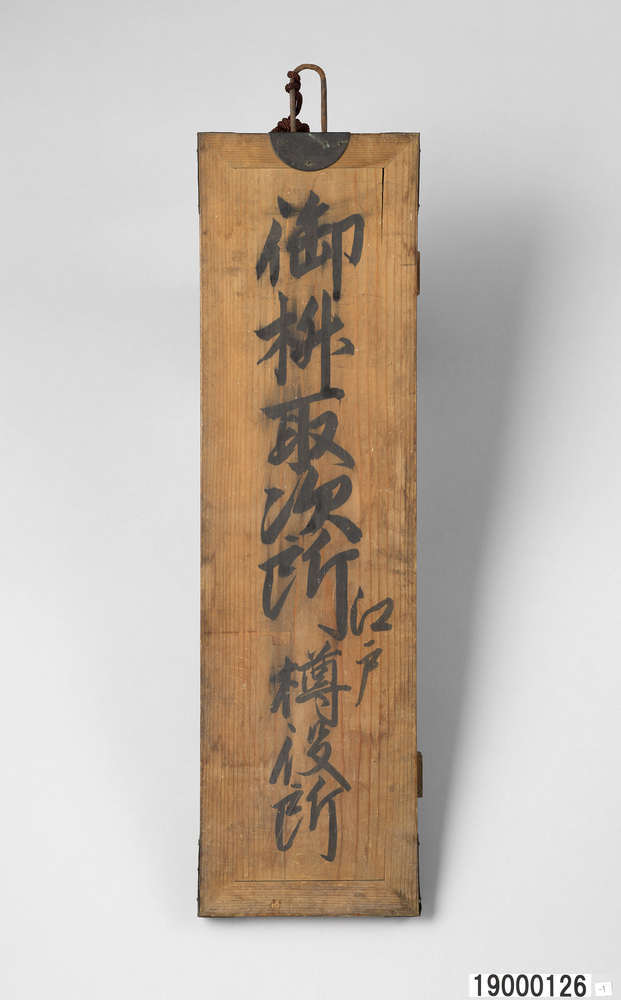 御桝取次所
江戸
樽役所
19000126
-1